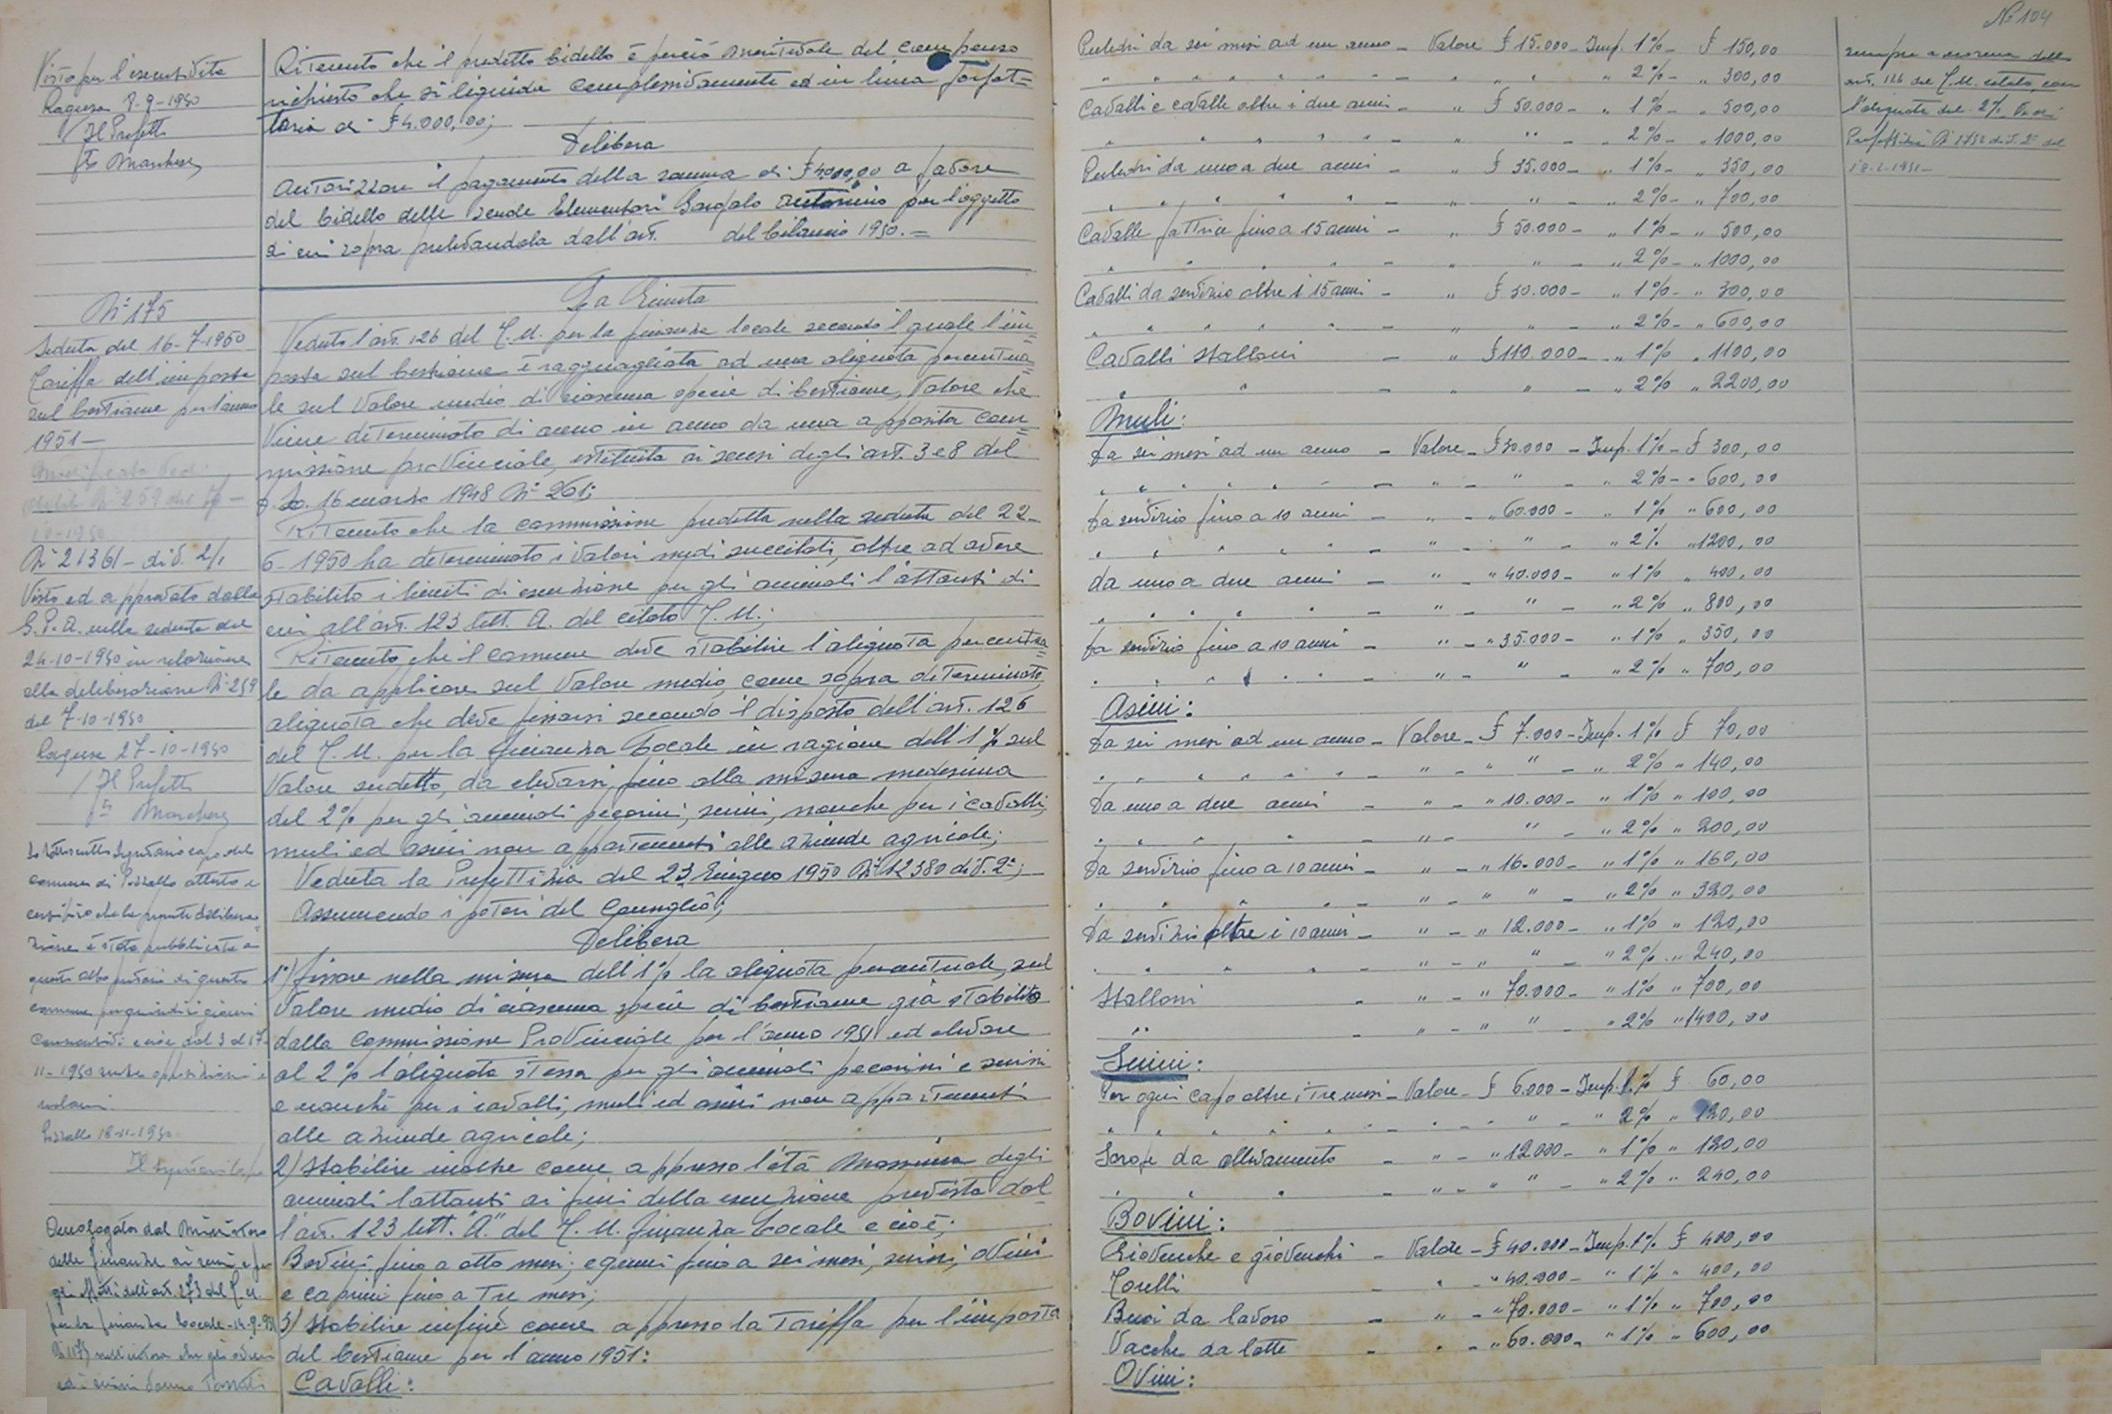 Visto per l'esecutività
Ragusa 8-9-1950
Il Prefetto
Fto Marchese
Ritenuto che il predetto bidello è perciò meritevole del compenso
richiesto che si liquida complessivamente ed in linea forfet=
taria di £ 4.000,00;
Delibera
Autorizzare il pagamento della somma di £ 4000,00 a favore
del bidello delle scuole Elementari Garofalo Antonino per l'oggetto
di cui sopra prelevandola dall'art. del bilancio 1950.=
N° 175
Seduta del 16-7-1950
Tariffa dell'imposta
sul bestiame per l'anno
1951-
Modificata Vedi
delib. N° 259 del 7-
10-1950
N° 21361- div. 2/1
Visto ed approvato dalla
G.P.A. nella seduta del
24-10-1950 in relazione
alla deliberazione N° 259
del 7-10-1950
Ragusa 27-10-1950
Il Prefetto
Fto Marchese
Io sottoscritto Segretario capo del
comune di Pozzallo attesto e
certifico che la presente delibera=
zione è stata pubblicata a
questo albo pretorio di questo
comune per quindici giorni
consecutivi e cioè dal 3 al 17-
11-1950 senza opposizioni e
reclami.
Pozzallo 18-11-1950
Il Segretario Capo
Omologata dal Ministero
delle Finanze ai sensi e per
gli effetti dell'art. 273 del T.U.
per la finanza locale-14-9-931
N° 1175 nell'intesa che gli ovini
ed i suini vanno tassati
La Giunta
Veduto l'art. 126 del T.U. per la finanza locale secondo il quale l'im=
posta sul bestiame è ragguagliata ad una aliquota percentua=
le sul valore medio di ciascuna specie di bestiame, valore che
viene determinato di anno in anno da una apposita com=
missione provinciale, istituita ai sensi degli art. 3 e 8 del
D.L. 16 marzo 1948 N° 261;
Ritenuto che la commissione predetta nella seduta del 22-
6-1950 ha determinato i valori medi succitati, oltre ad avere
stabilito i limiti di esenzione per gli animali lattanti di
cui all'art. 123 lett. A. del citato T.U.;
Ritenuto che il comune deve stabilire l'aliquota percentua=
le da applicare sul valore medio, come sopra determinato
aliquota che deve fissarsi secondo il disposto dell'art. 126
del T.U. per la finanza locale in ragione dell'1% sul
valore suddetto, da elevarsi fino alla misura medesima
del 2% per gli animali pecorini, suini, nonchè per i cavalli,
muli ed asini non appartenenti alle aziende agricole;
Veduta la Prefettizia del 23 Giugno 1950 N° 12380 div. 2ª;
Assumendo i poteri del Consiglio;
Delibera
1°) fissare nella misura dell'1% la aliquota percentuale, sul
valore medio di ciascuna specie di bestiame già stabilito
dalla commissione Provinciale per l'anno 1951 ed elevare
al 2% l'aliquota stessa per gli animali pecorini e suini
e nonchè per i cavalli, muli ed asini non appartenenti
alle aziende agricole;
2) Stabilire inoltre come appresso l'età massima degli
animali lattanti ai fini della esenzione prevista dal=
l'art. 123 lett. "A" del T.U. finanza locale e cioè;
Bovini fino a otto mesi; equini fino a sei mesi, suini, ovini
e caprini fino a tre mesi;
3) Stabilire infine come appresso la Tariffa per l'imposta
del bestiame per l'anno 1951:
Cavalli:
N° 104
Puledri da sei mesi ad un anno - Valore £ 15.000 - Imp. 1% - £ 150,00
" " " " " " " - " " " " 2% - " 300,00
Cavalli e cavalle oltre i due anni - " £ 50.000 - " 1% - " 500,00
" " " " " " - " " " 2% - " 1000,00
Puledri da uno a due anni - " £ 35.000 - " 1% - " 350,00
" " " " " " - " " - " 2% - " 700,00
Cavalle fattrice fino a 15 anni - " £ 50.000 - " 1% - " 500,00
" " " " " - " " - " 2% - " 1000,00
Cavalli da servizio oltre i 15 anni - " £ 30.000 - " 1% - " 300,00
" " " " " " - " " - " 2% - " 600,00
Cavalli stalloni - " £ 110.000 - " 1% " 1100,00
" " - " " - " 2% " 2200,00
Muli:
Da sei mesi ad un anno - Valore - £ 30.000 - Imp. 1% - £ 300,00
" " " " " " - " - " - " 2% - " 600,00
Da servizio fino a 10 anni - " - " 60.000 - " 1% " 600,00
" " " " " - " - " - " 2% " 1200,00
Da uno a due anni - " - " 40.000 - " 1% " 400,00
" " " " " - " - " - " 2% " 800,00
Da servizio fino a 10 anni - " - " 35.000 - " 1% " 350,00
" " " " " - " - " - " 2% " 700,00
Asini:
Da sei mesi ad un anno - Valore - £ 7.000 - Imp. 1% £ 70,00
" " " " " " - " - " " - " 2% " 140,00
Da uno a due anni - " - " 10.000 - " 1% " 100,00
" " " " " - " - " - " 2% " 200,00
Da servizio fino a 10 anni - " - " 16.000 - " 1% " 160,00
" " " " " - " - " " - " 2% " 320,00
Da servizio oltre i 10 anni - " - " 12.000 - " 1% " 120,00
" " " " " - " - " " - " 2% " 240,00
Stalloni - " - " 70.000 - " 1% " 700,00
" - " - " " - " 2% " 1400,00
Suini:
Per ogni capo oltre i tre mesi - Valore - £ 6.000 - Imp. 1% £ 60,00
" " " " " " - " - " - " 2% " 120,00
Scrofe da allevamento - " - " 12.000 - " 1% " 120,00
" " " - " - " " - " 2% " 240,00
Bovini:
Giovenche e giovenchi - Valore - £ 40.000 - Imp. 1% £ 400,00
Torelli - " - " 40.000 - " 1% " 400,00
Buoi da lavoro - " - " 70.000 - " 1% " 700,00
Vacche da latte - " - " 60.000 - " 1% " 600,00
Ovini:
sempre a norma dello
art. 126 del T.U. citato, con
l'aliquota del 2%
Prefettizia N° div. 2ª del